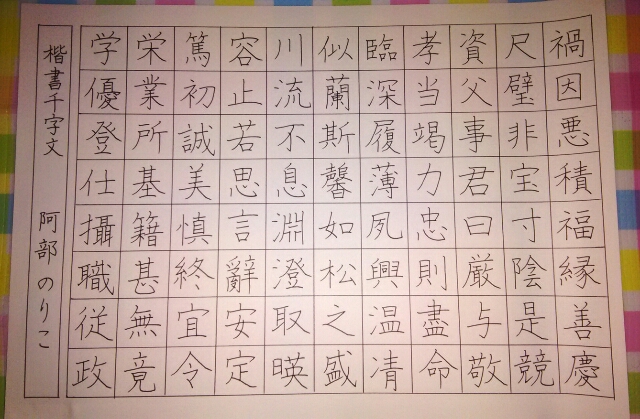 禍因悪積福縁善慶
尺璧非宝寸陰是競
資父事君曰厳与敬
孝当竭力忠則盡命
臨深履薄夙興温凊
似蘭斯馨如松之盛
川流不息淵澄取暎
容止若思言辭安定
篤初誠美慎終宜令
栄業所基籍甚無竟
学優登仕攝職従政
楷書千字文 阿部のりこ